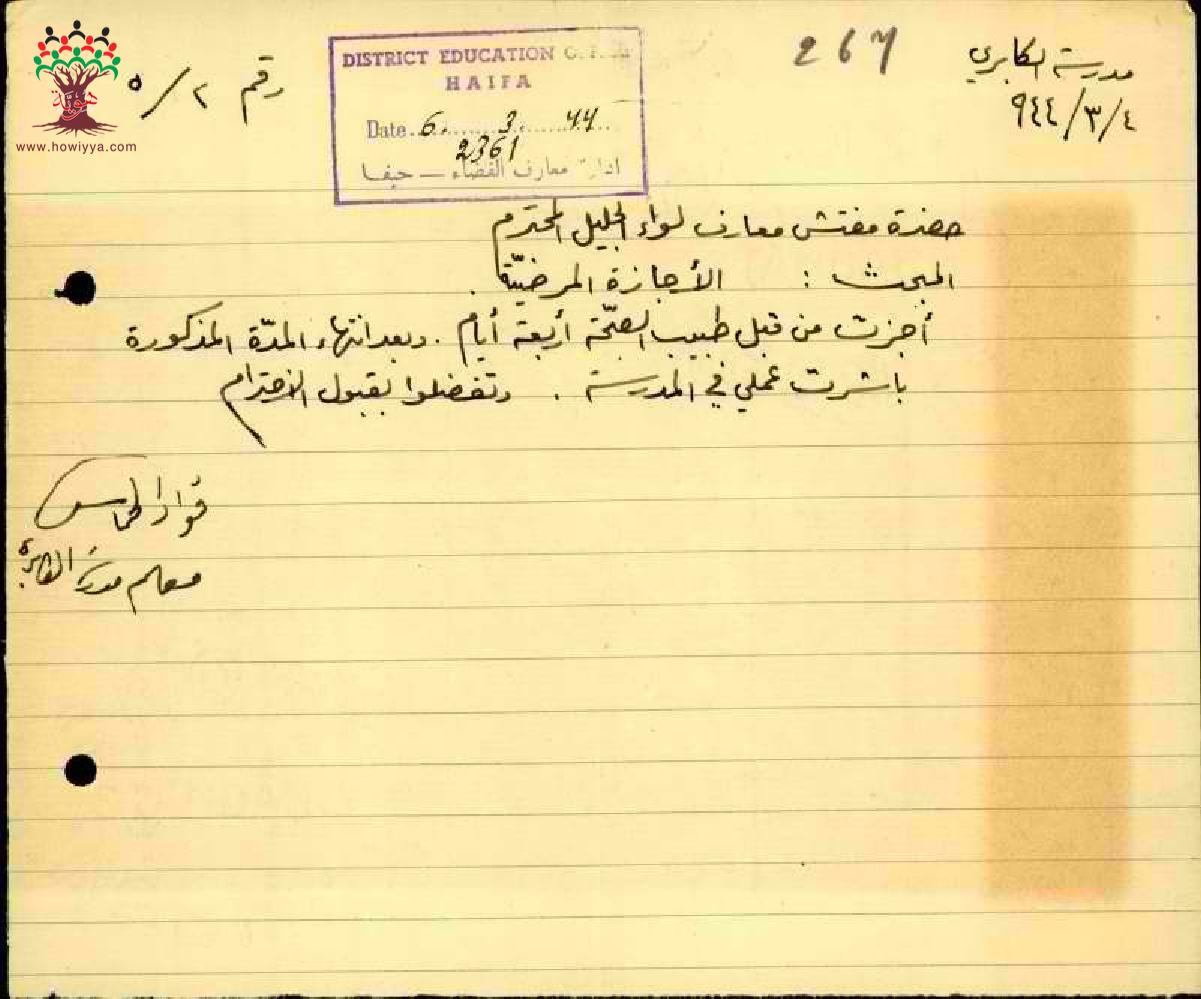 مدرسة الكابري
٩٤٤/٣/٤
267
DISTRICT EDUCATION
HAIFA
Date 6. 3. 44
2361
ادارة معارف القضاء — حيفا
رقم ٥/٢
هوية
www.howiyya.com
حضرة مفتش معارف لواء الجليل المحترم
المبحث : الأجازة المرضيّة .
أجزت من قبل طبيب الصحّة أربعة أيام . وبعد انتهاء المدّة المذكورة
باشرت عملي في المدرسة . وتفضلوا بقبول الاحترام
فؤاد
معلم مدرسة الكابري